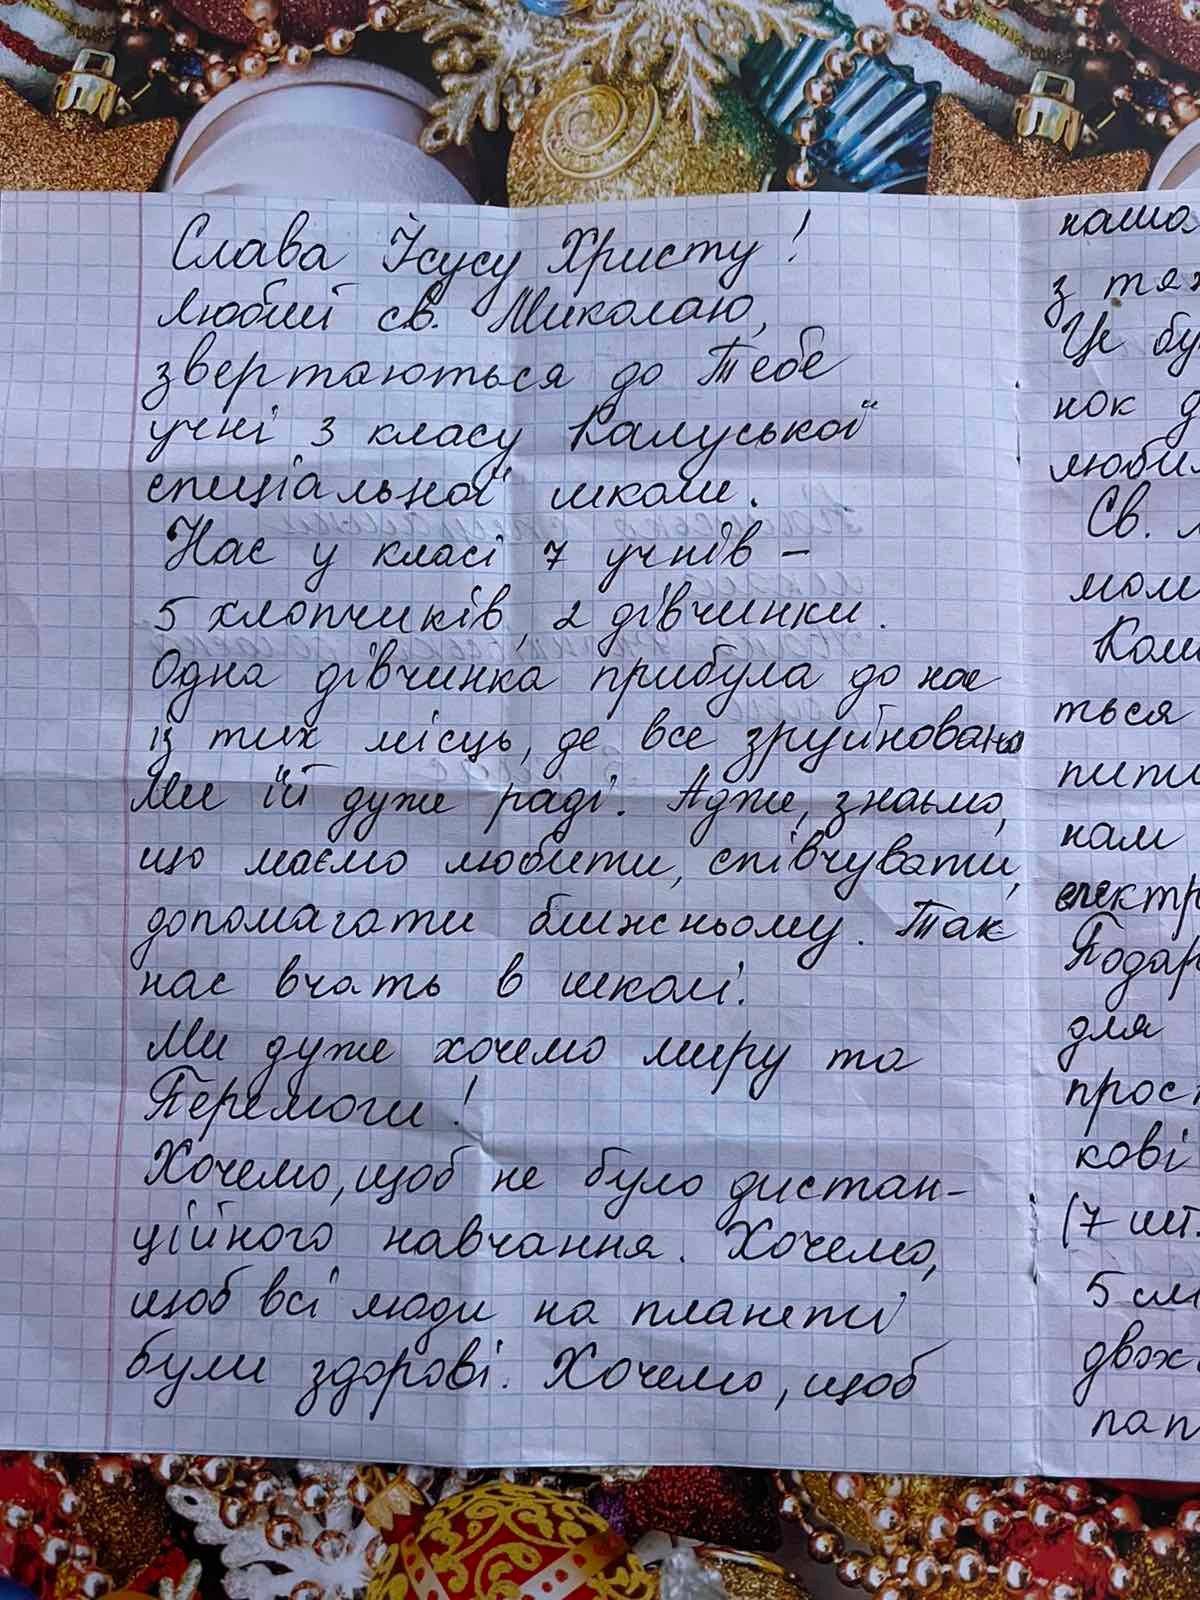 Слава Ісусу Христу!
Любий св. Миколаю,
звертаються до Тебе
учні 3 класу Калуської
спеціальної школи.
Нас у класі 7 учнів –
5 хлопчиків, 2 дівчинки.
Одна дівчинка прибула до нас
із тих місць, де все зруйновано
Ми їй дуже раді. Адже, знаємо,
що маємо любити, співчувати,
допомагати ближньому. Так
нас вчать в школі.
Ми дуже хочемо миру та
Перемоги!
Хочемо, щоб не було дистан-
ційного навчання. Хочемо,
щоб всі люди на планеті
були здорові. Хочемо, щоб
наша
з тяж
Це бу
нок д
любил
Св. М
мом
Коли
ться
пити
нам
електр
Подар
для
прос
кові
(7 шт.
5 сл
двох
пап